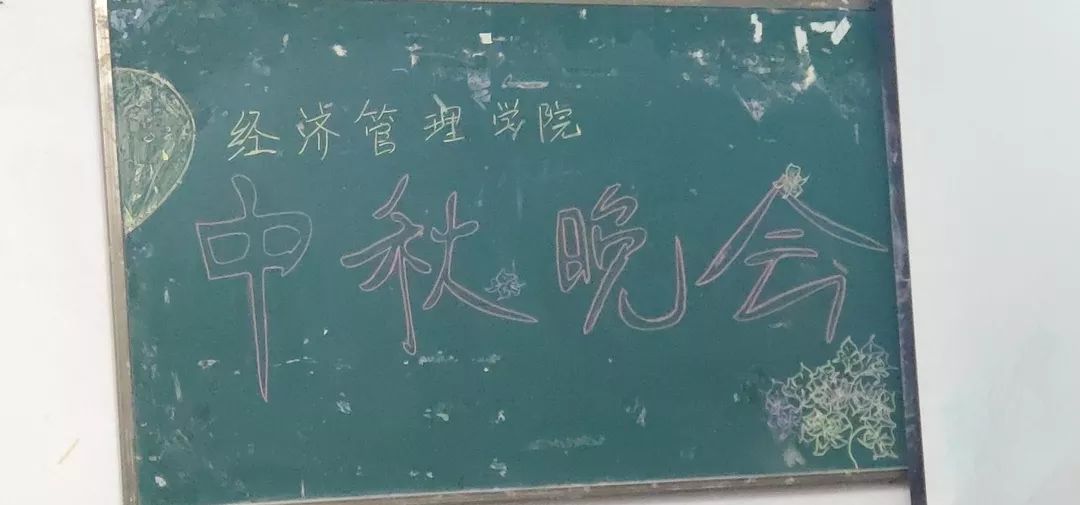 经济管理学院
中秋晚会